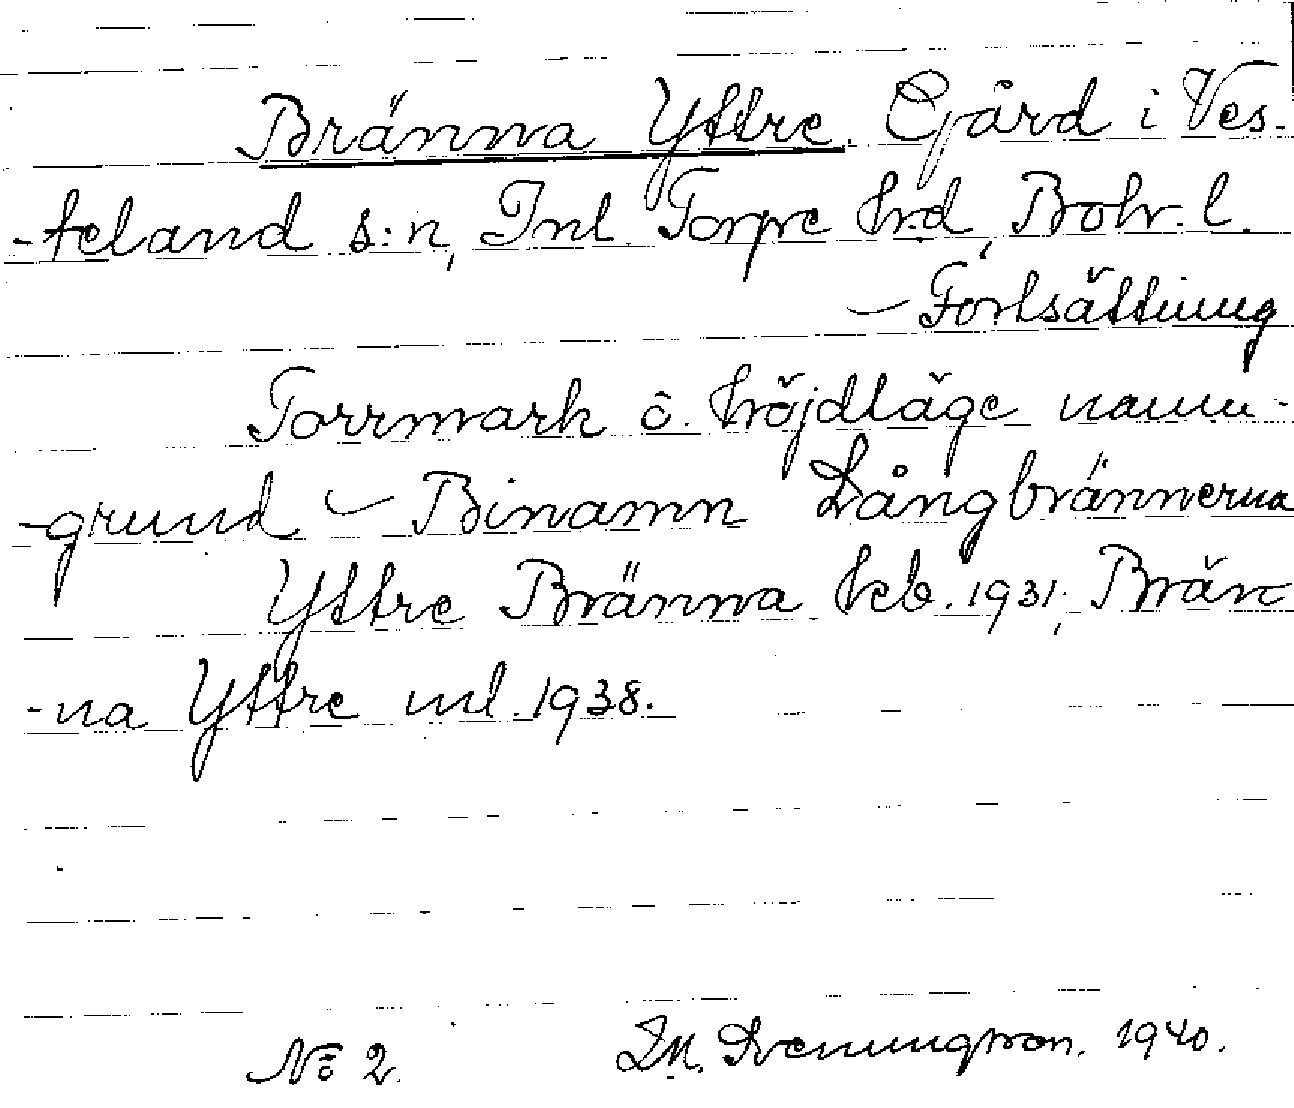 Bränna Yttre. Gård i Ves-
-teland s:n, Inl Torpe hrd, Bohr. l.
– Fortsättning
Torrmark o. höjdläge namn-
-grund – Binamn Långbrännerna
Yttre Bränna beb. 1931; Brän-
-na Yttre ml. 1938.
No 2. D.M. Svenungsson. 1940.